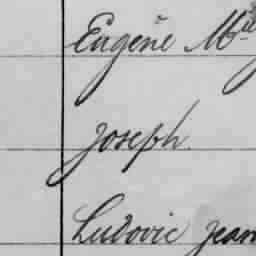 Eugène Mie
Joseph.
Ludovic Jean